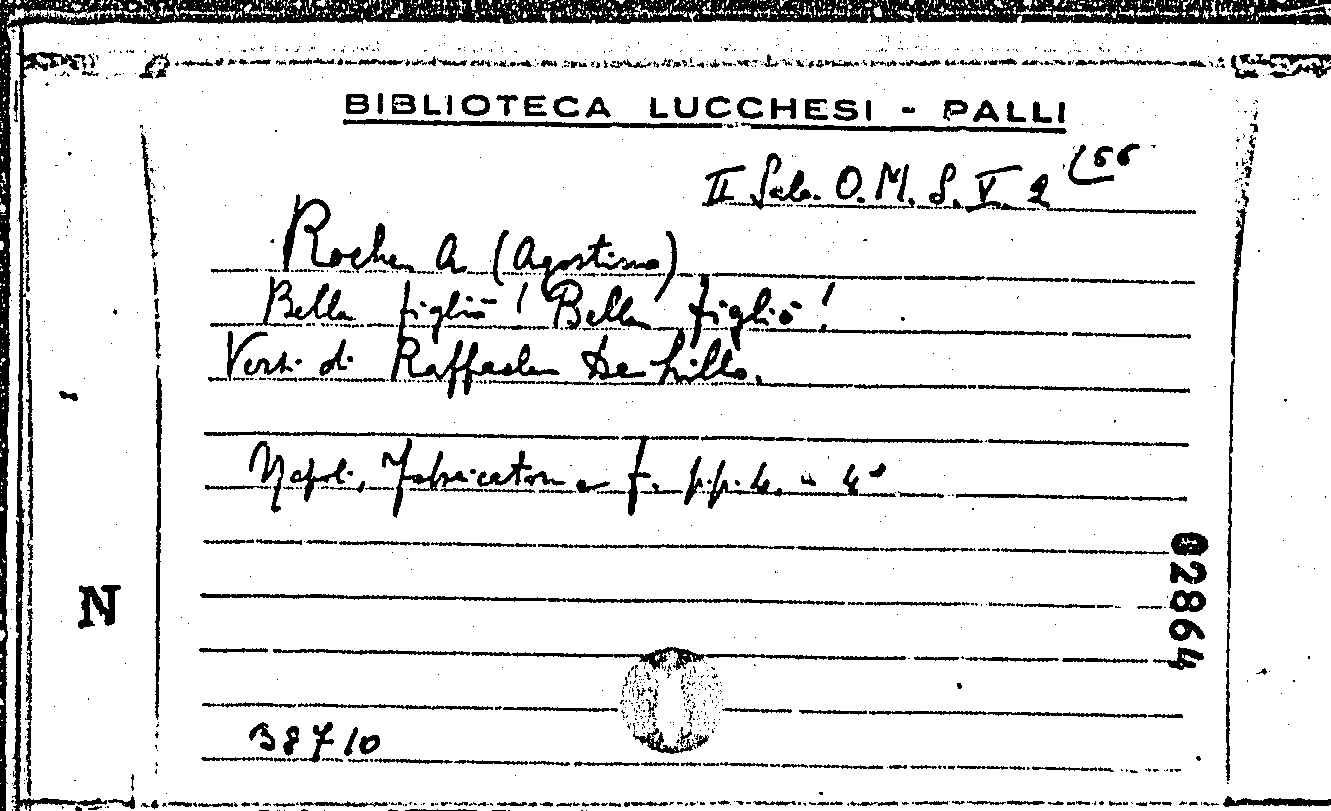 BIBLIOTECA LUCCHESI - PALLI
II Sala. O. M. S. V. 2 (56
Roche A. (Agostino)
Bella figliò! Bella figliò!
Versi di Raffaele De Lillo.
Napoli, Fabricatore F. p.p. 4. in 4°
N
02864
38710